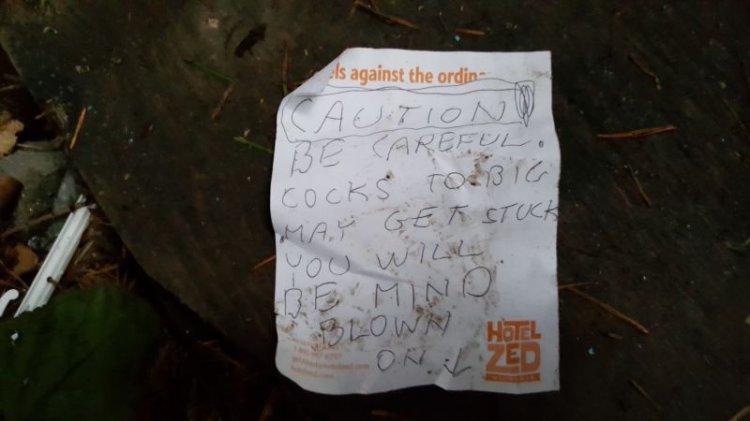 els against the ordin
CAUTION
BE CAREFUL.
COCKS TO BIG
MAY GET STUCK
YOU WILL
BE MIND
BLOWN
ON ↓
HOTEL
ZED